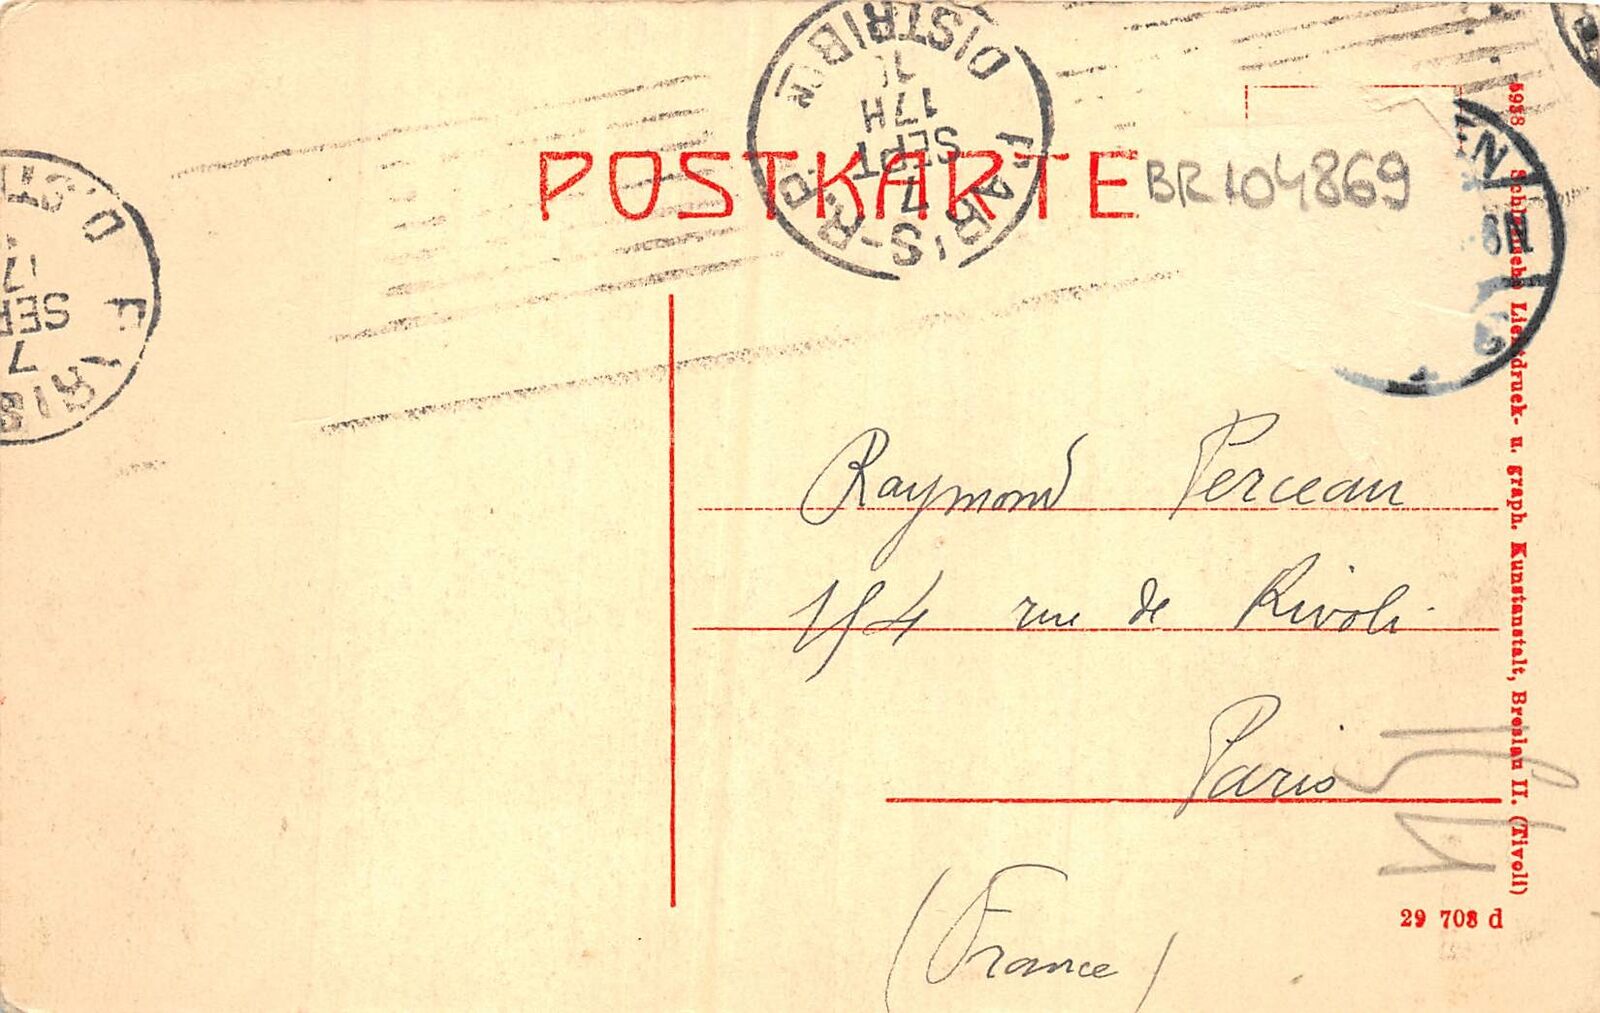 POSTKARTE
BR104869
DISTRIBON
17H
SEPT
7
PARIS-R.P.
SEP
7
Raymond Perceau
154 rue de Rivoli
Paris
(France)
5988 Schlesische Lichtdruck- u. graph. Kunstanstalt, Breslau II. (Tivoli)
29 708 d